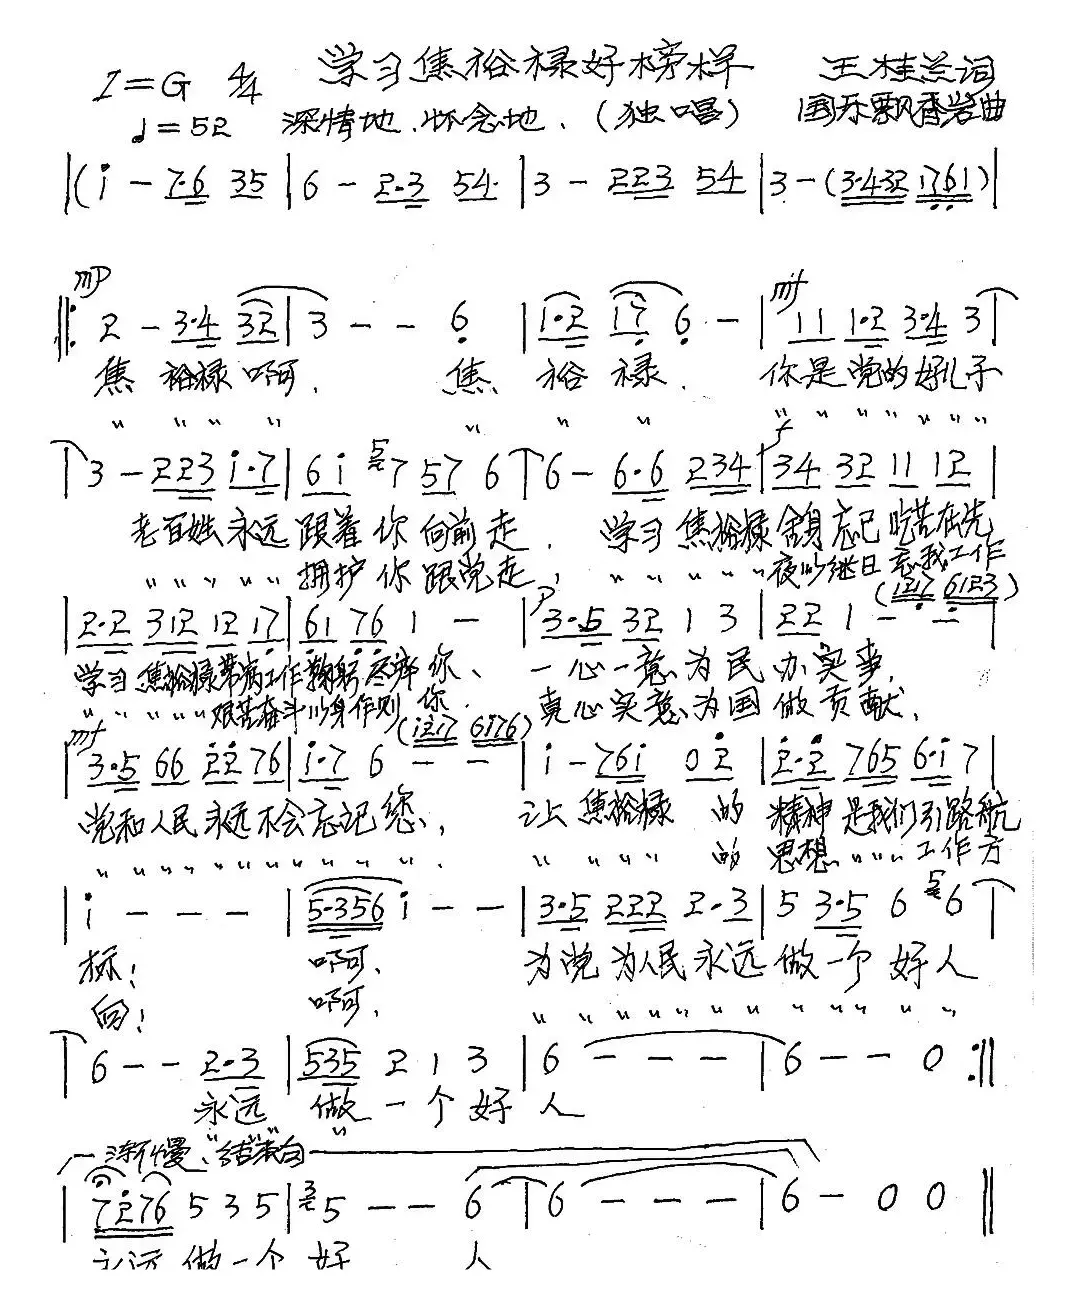 学习焦裕禄好榜样
1=G 4/4 王桂兰词
♩=52 深情地、怀念地、(独唱) 国乐飘香岩曲
|(i - 7·6 35|6 - 2·3 54·|3 - 223 54|3 - (3·432 1761)|
mp mf
‖: 2 - 3·4 32|3 - - 6|1·2 17 6 -|11 1·2 3·4 3|
焦裕禄啊, 焦裕禄, 你是党的好儿子
〃 〃 〃 〃 〃 〃 〃 〃 〃 〃 〃 〃 〃 〃
f
3 - 223 i·7|6i 57 57 6|6 - 6·6 234|34 32 11 12|
老百姓永远跟着你向前走, 学习焦裕禄舍身忘己吃苦在先
〃 〃 〃 〃 〃 拥护你跟党走, 〃 〃 〃 〃 〃 夜以继日忘我工作
(1217 6123)
|2·2 312 12 17|61 76 1 -|p 3·5 32 1 3|22 1 - -|
学习焦裕禄带病工作鞠躬尽瘁你、 一心一意为民办实事,
〃 〃 〃 〃 〃 艰苦奋斗以身作则你, 真心实意为国做贡献,
mf (i217 6176)
|3·5 66 22 76|i·7 6 - -|i - 76i 02|2·2 765 6·i 7|
党和人民永远不会忘记您, 让焦裕禄的精神是我们引路航
〃 〃 〃 〃 〃 〃 〃 〃 〃 〃 〃 〃 〃 〃 〃 的思想 〃 〃 〃 工作方
|i - - -|5·356 i - -|3·5 222 2·3|5 3·5 6 56|
标! 啊, 为党为人民永远做一个好人
向! 啊, 〃 〃 〃 〃 〃 〃 〃 〃 〃 〃 〃 〃 〃
6 - - 2·3|535 2 1 3|6 - - -|6 - - 0 :‖
永远做一个好人
〃 〃 〃
渐慢、结束句
|7276 5 3 5|35 - - 6|6 - - -|6 - 0 0‖
永远做一个好人